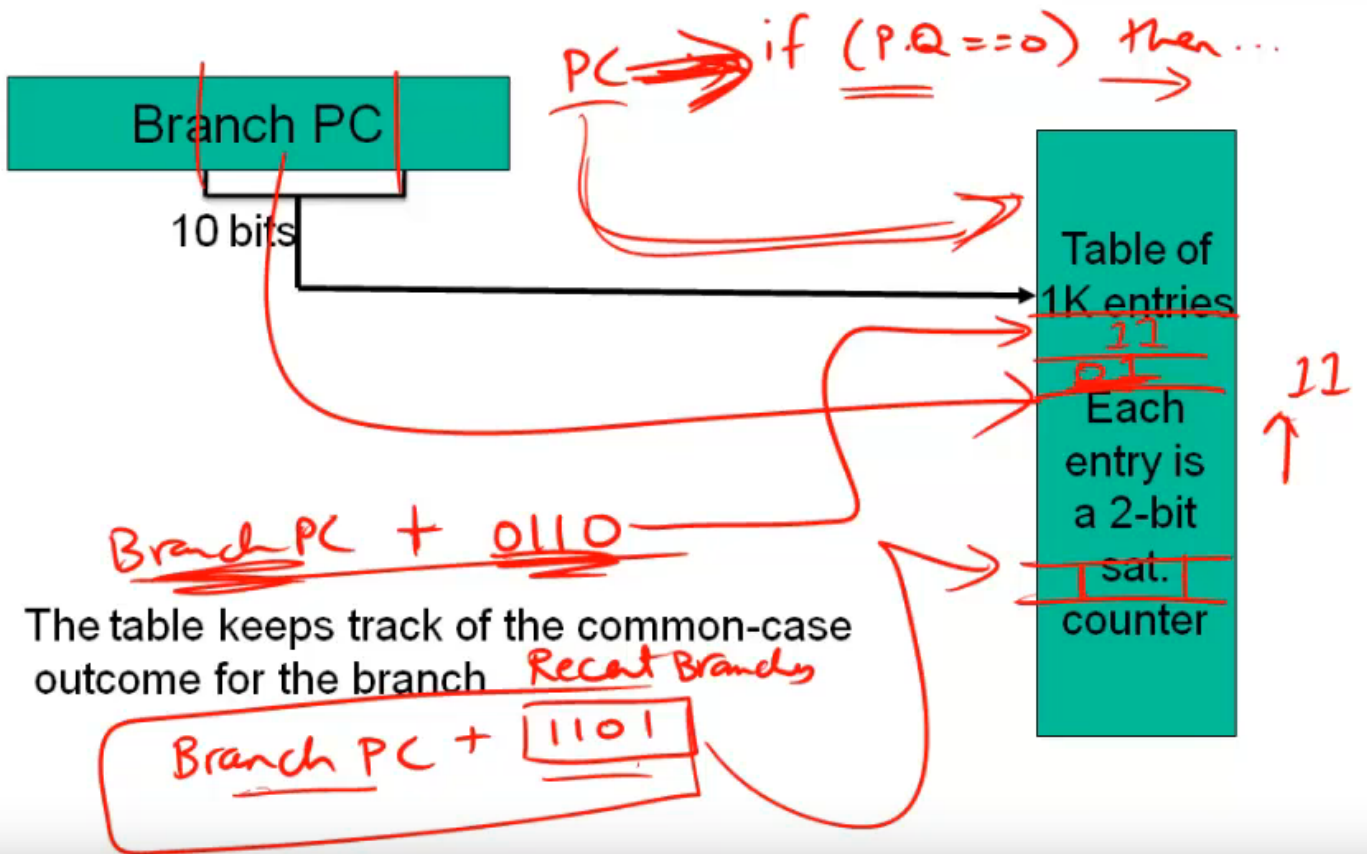 PC if (P.Q==0) then...
Branch PC
10 bits
Table of
1K entries
11
01
11
Each
entry is
a 2-bit
sat.
counter
Branch PC + 0110
The table keeps track of the common-case
outcome for the branch
Recent Branches
Branch PC + 1101